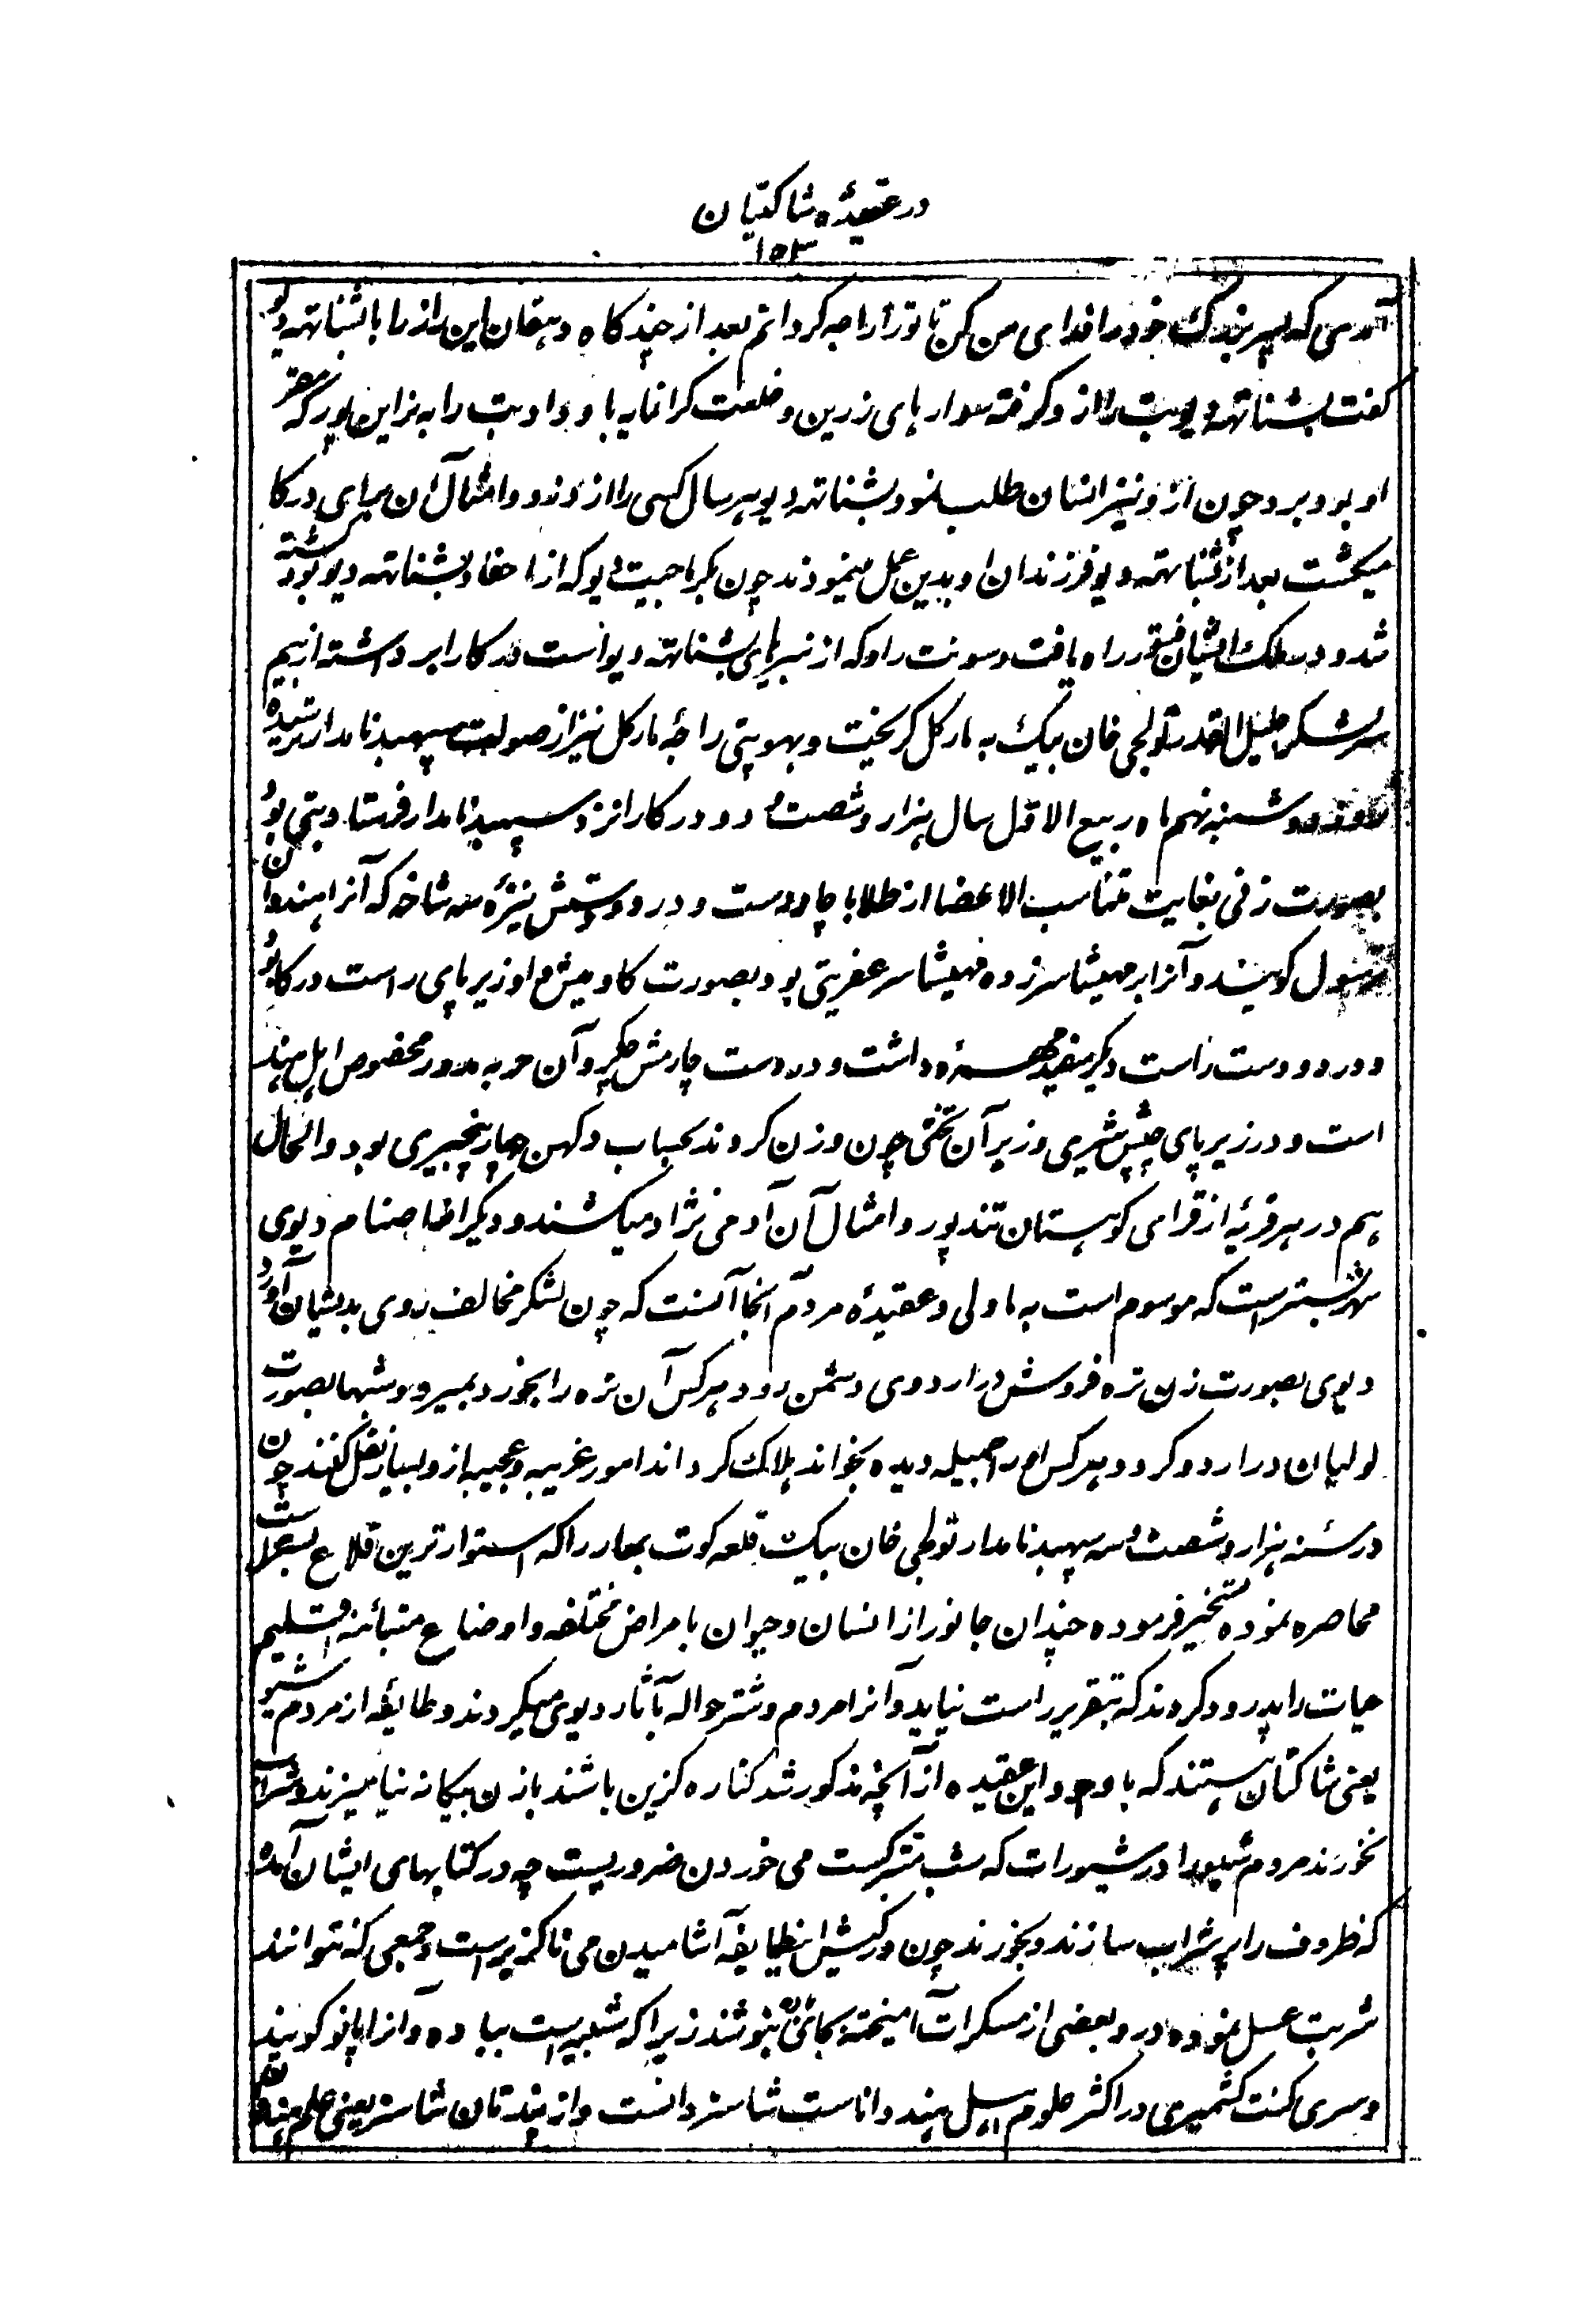 در عقیدهٔ شاکتیان
۱۵۳
آمدی که پسر بزرگ خود را فدای من کن تا ترا راجه گردانم بعد از چند گاه دهقان این راز را با بشناتهه دیو
گفت بشناتهه دیو بت را ازو گرفته سوارهای زرین و خلعت گرانمایه با و داد و بت را به نراین پور که مقر
او بود برد چون ازو نیز انسان طلب نمود بشناتهه دیو هر سال کسی را از دزد و امثال آن برای درکا
میکشت بعد از بشناتهه دیو فرزندان او بدین عمل مینمودند چون بکرماجیت دیو که از احفاد بشناتهه دیو بود کشته
شد و در ملک ایشان فتور راه یافت و سونت راو که از نبیرهای بشناتهه دیو است درکا را برداشته از بیم
سرلشکر جلیل القدر تولچی خان بیگ به مارکل گریخت و بهوپتی راجهٔ مارکل نیز از صولت سپهبد نامدار ترسیده
روز دوشنبه نهم ماه ربیع الاول سال هزار و شصت و دو درکا را نزد سپهبد نامدار فرستاد و بتی بود
بصورت زنی بغایت متناسب الاعضا از طلا با چار دست و در دو دستش نیزهٔ سه شاخه که آنرا هندوان
ترسول گویند و آنرا بر مهیشاسر زده مهیشاسر عفریتی بود بصورت گاومیش و او زیر پای راست درکا بود
و در دو دست راست دیگر سفید مهره داشت و در دست چارمش چکر و آن حربه مدور مخصوص اهل هند
است و در زیر پای چپش شیری و زیر آن تختی چون وزن کردند بحساب دکهن چهار پنجسیری بود و الحال
هم در هر قریهٔ از قرای کوهستان تندپور و امثال آن آدمی نژاد میکشند و دیگر از اصنام دیوی
شهر بستر است که موسوم است به ماولی و عقیدهٔ مردم آنجا آنست که چون لشکر مخالف روی بدیشان آورد
دیوی بصورت زن تره فروش در اردوی دشمن رود هر کس آن تره را بخورد بمیرد و شبها بصورت
لولیان در اردو گردد و هر کس او را جمیله دیده بخواند هلاک گردد اند امور غریبه و عجیبه ازو بسیار نقل کنند چون
در سنه هزار و شصت و سه سپهبد نامدار تولچی خان بیگ قلعه کوت بهار را که استوارترین قلاع بستر است
محاصره نموده تسخیر فرموده چندان جانور از انسان و حیوان بامراض مختلفه و اوضاع متبائنه اقلیم
حیات را پدرود کردند که بتقریر راست نیاید و آنرا مردم دشتر حواله بآثار دیوی میکردند و طائفه از مردم شیو
یعنی شاکتان هستند که با وجود این عقیده از آنچه مذکور شد کناره گزین باشند با زن بیگانه نیامیزند و شراب
نخورند مردم شیو را در شیورات که شب متبرکست می خوردن ضروریست چه در کتابهای ایشان آمده
که ظروف را پر شراب سازند و بخورند چون در کیش این طایفه آشامیدن می ناگزیر است و جمعی که نتوانند
شربت عسل نموده در و بعضی از مسکرات آمیخته بجای آن بنوشند زیرا که شبیه است بباده و آنرا پانو گویند
و سری کنت کشمیری در اکثر علوم اهل هند داناست شاستر دانست و از پندتان شاستر یعنی علم